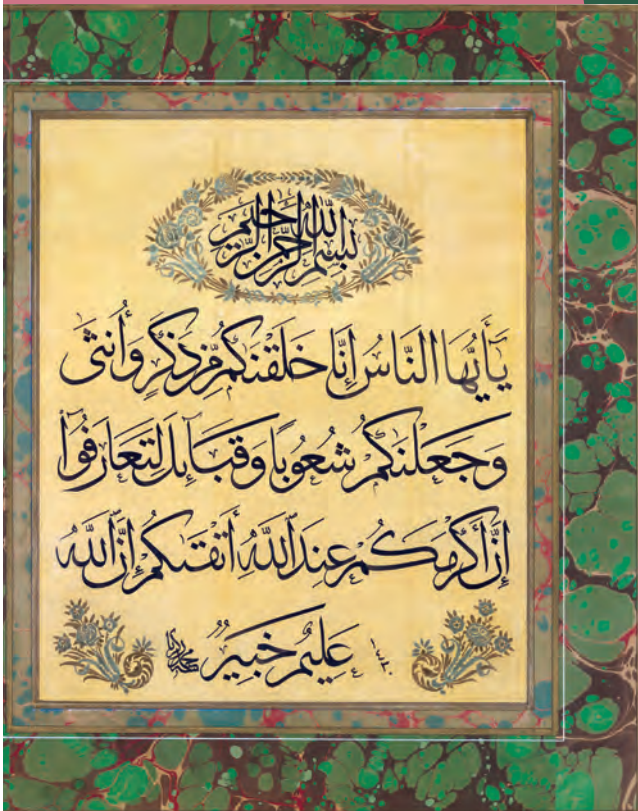 بسم الله الرحمن الرحيم
يَٰٓأَيُّهَا النَّاسُ إِنَّا خَلَقْنَٰكُم مِّن ذَكَرٍ وَأُنثَىٰ
وَجَعَلْنَٰكُمْ شُعُوبًا وَقَبَآئِلَ لِتَعَارَفُوٓا۟
إِنَّ أَكْرَمَكُمْ عِندَ ٱللَّهِ أَتْقَىٰكُمْ إِنَّ ٱللَّهَ
عَلِيمٌ خَبِيرٌ